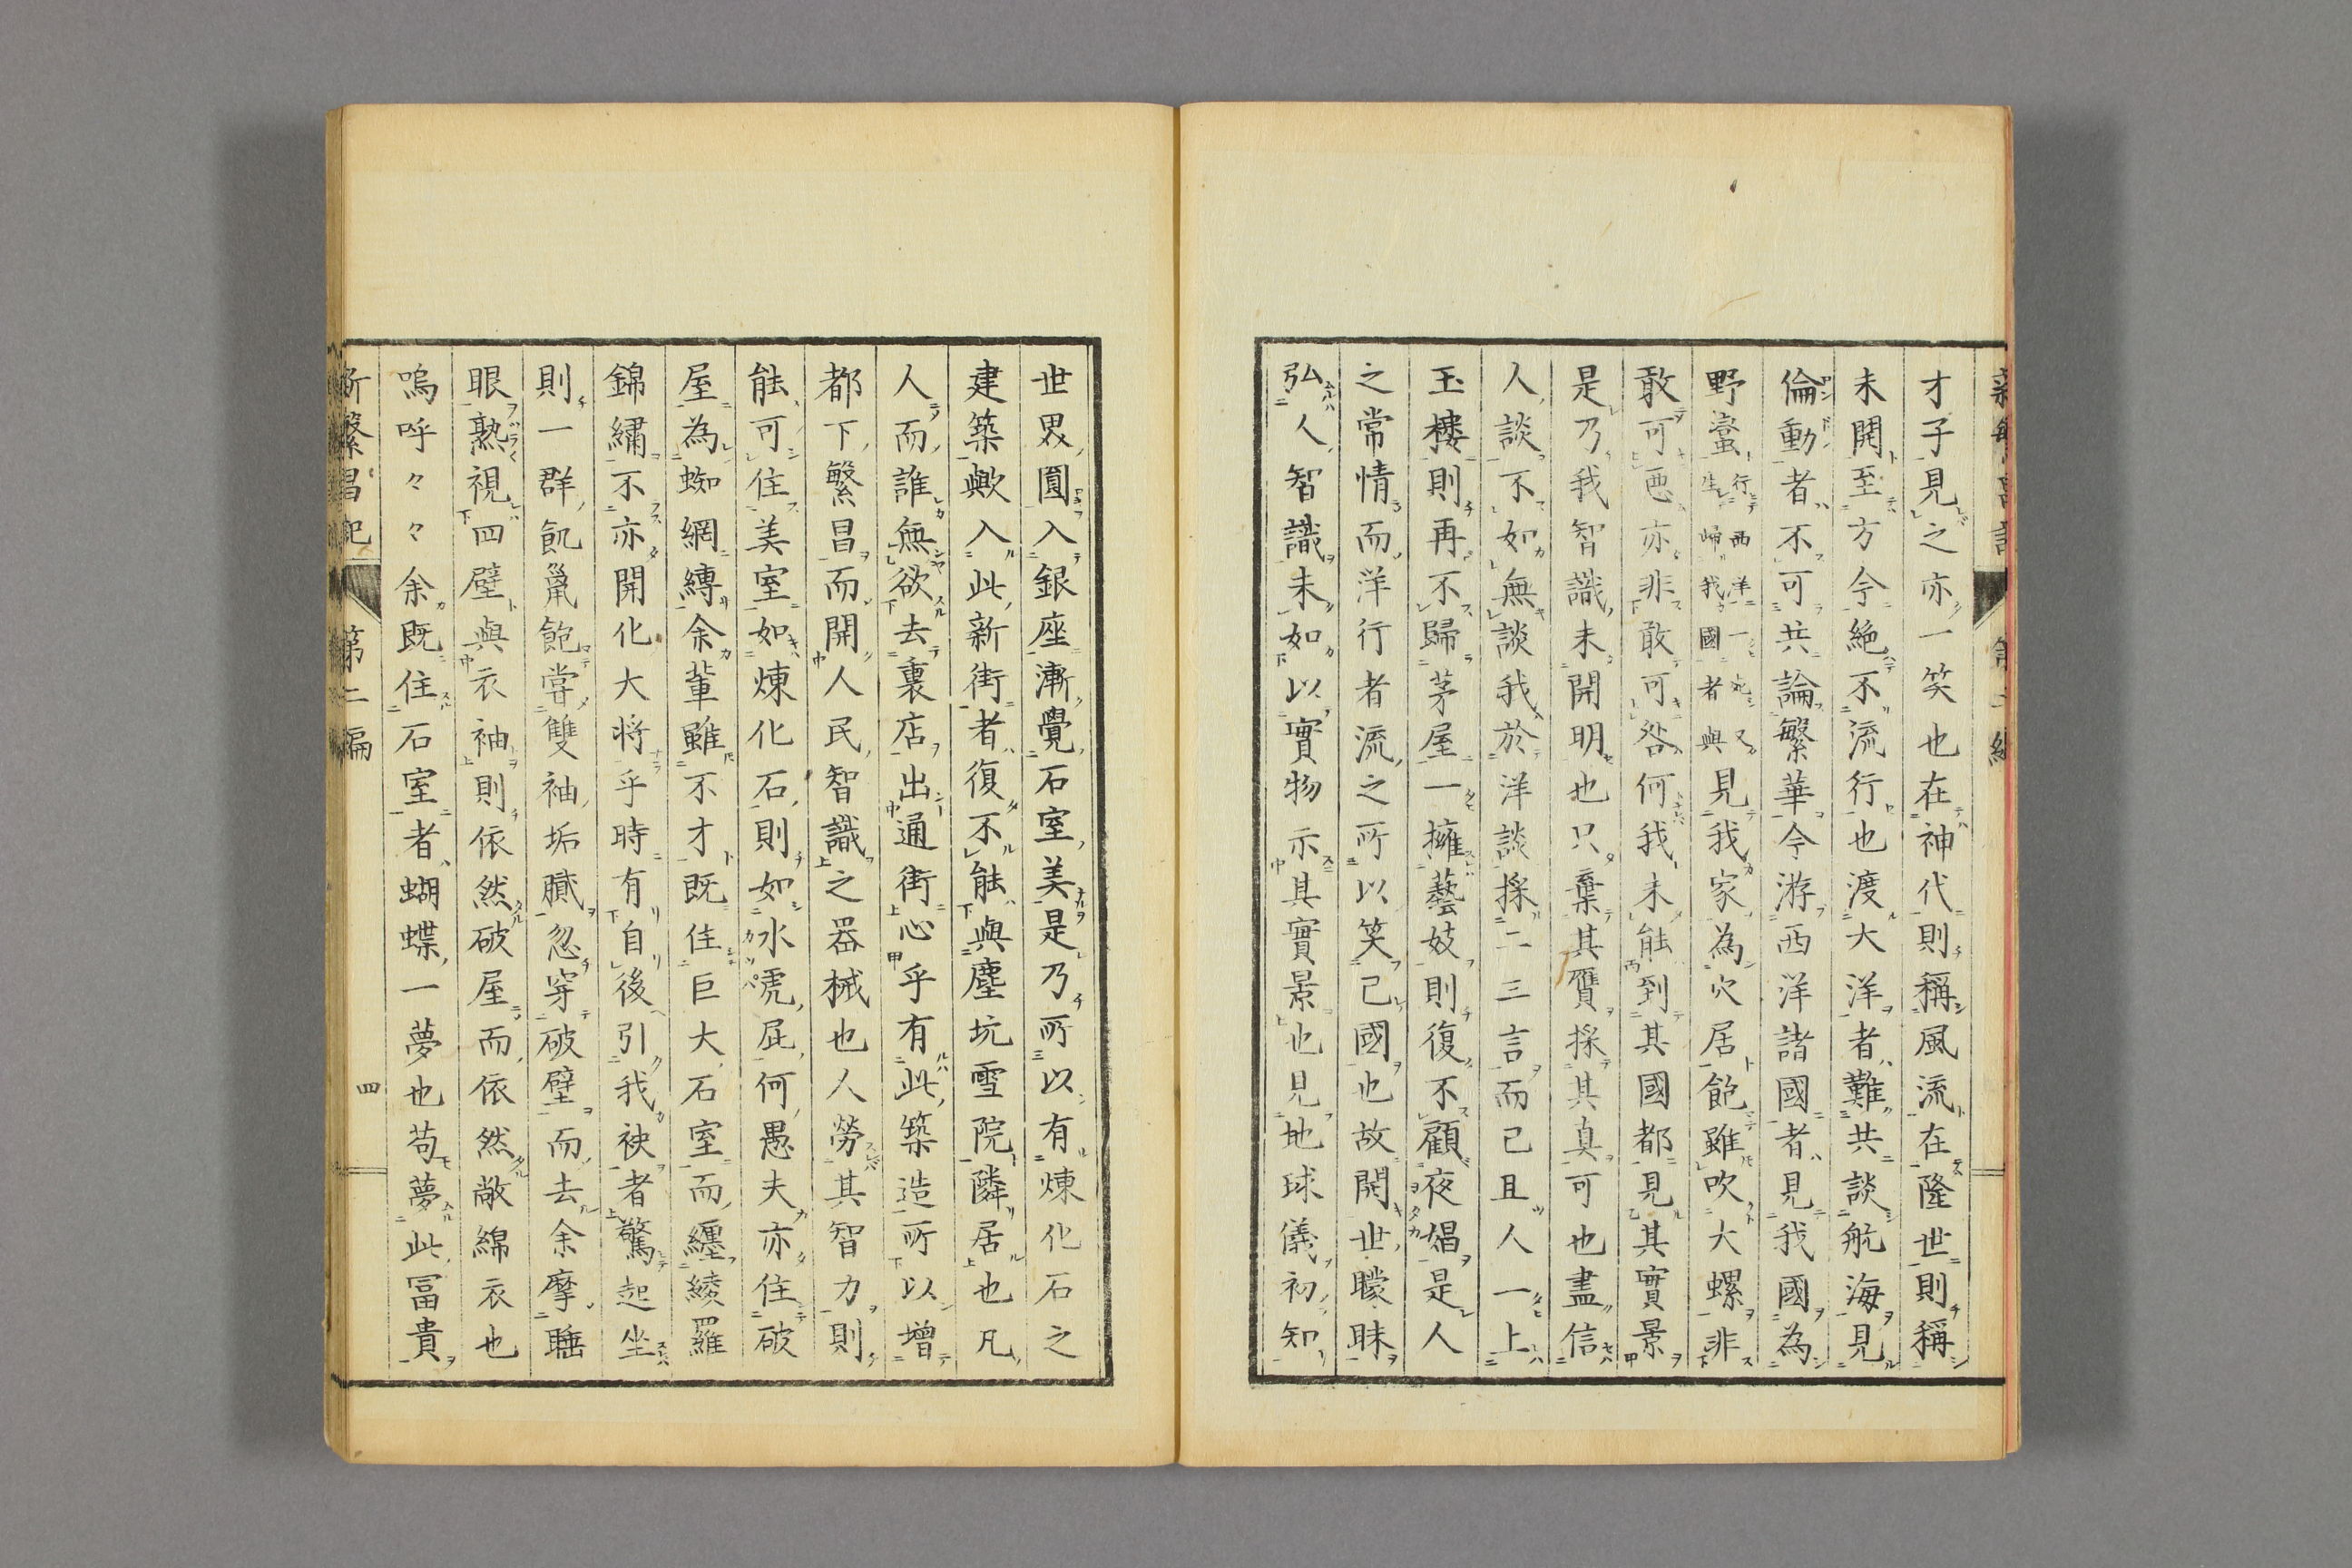 才子見之亦一笑也在神代則稱風流在隆世則稱
未開至方今絶不流行也渡大洋者難共談航海見
倫動者不可共論繁華今游西洋諸國者見我國為
野蠻行西洋一〻又生歸我國者與見我家為穴居飽雖吹大螺非
敢可惡亦非敢可咎何我未能到其國都見其實景
是乃我智識未開明也只棄其贋採其真可也盡信
人談不如無談我於洋談採二三言而已且人一上
玉樓則再不歸茅屋一擁藝妓則復不顧夜娼是人
之常情而洋行者流之所以笑己國也故開世矇昧
弘人智識未如以實物示其實景也見地球儀初知
世界圓入銀座漸覺石室美是乃所以有煉化石之
建築歟入此新街者復不能與塵坑雪院隣居也凡
人而誰無欲去裏店出通街心乎有此築造所以增
都下繁昌而開人民智識之器械也人勞其智力則
能可住美室如煉化石則如水虎屁何愚夫亦住破
屋為蜘網縛余輩雖不才既住巨大石室而纏綾羅
錦繡不亦開化大将乎時有自後引我袂者驚起坐
則一群飢鼠飽嘗雙袖垢膩忽穿破壁而去余摩睡
眼熟視四壁與衣袖則依然破屋而依然敝綿衣也
嗚呼々々余既住石室者蝴蝶一夢也苟夢此冨貴
新繁昌記 第二編 四